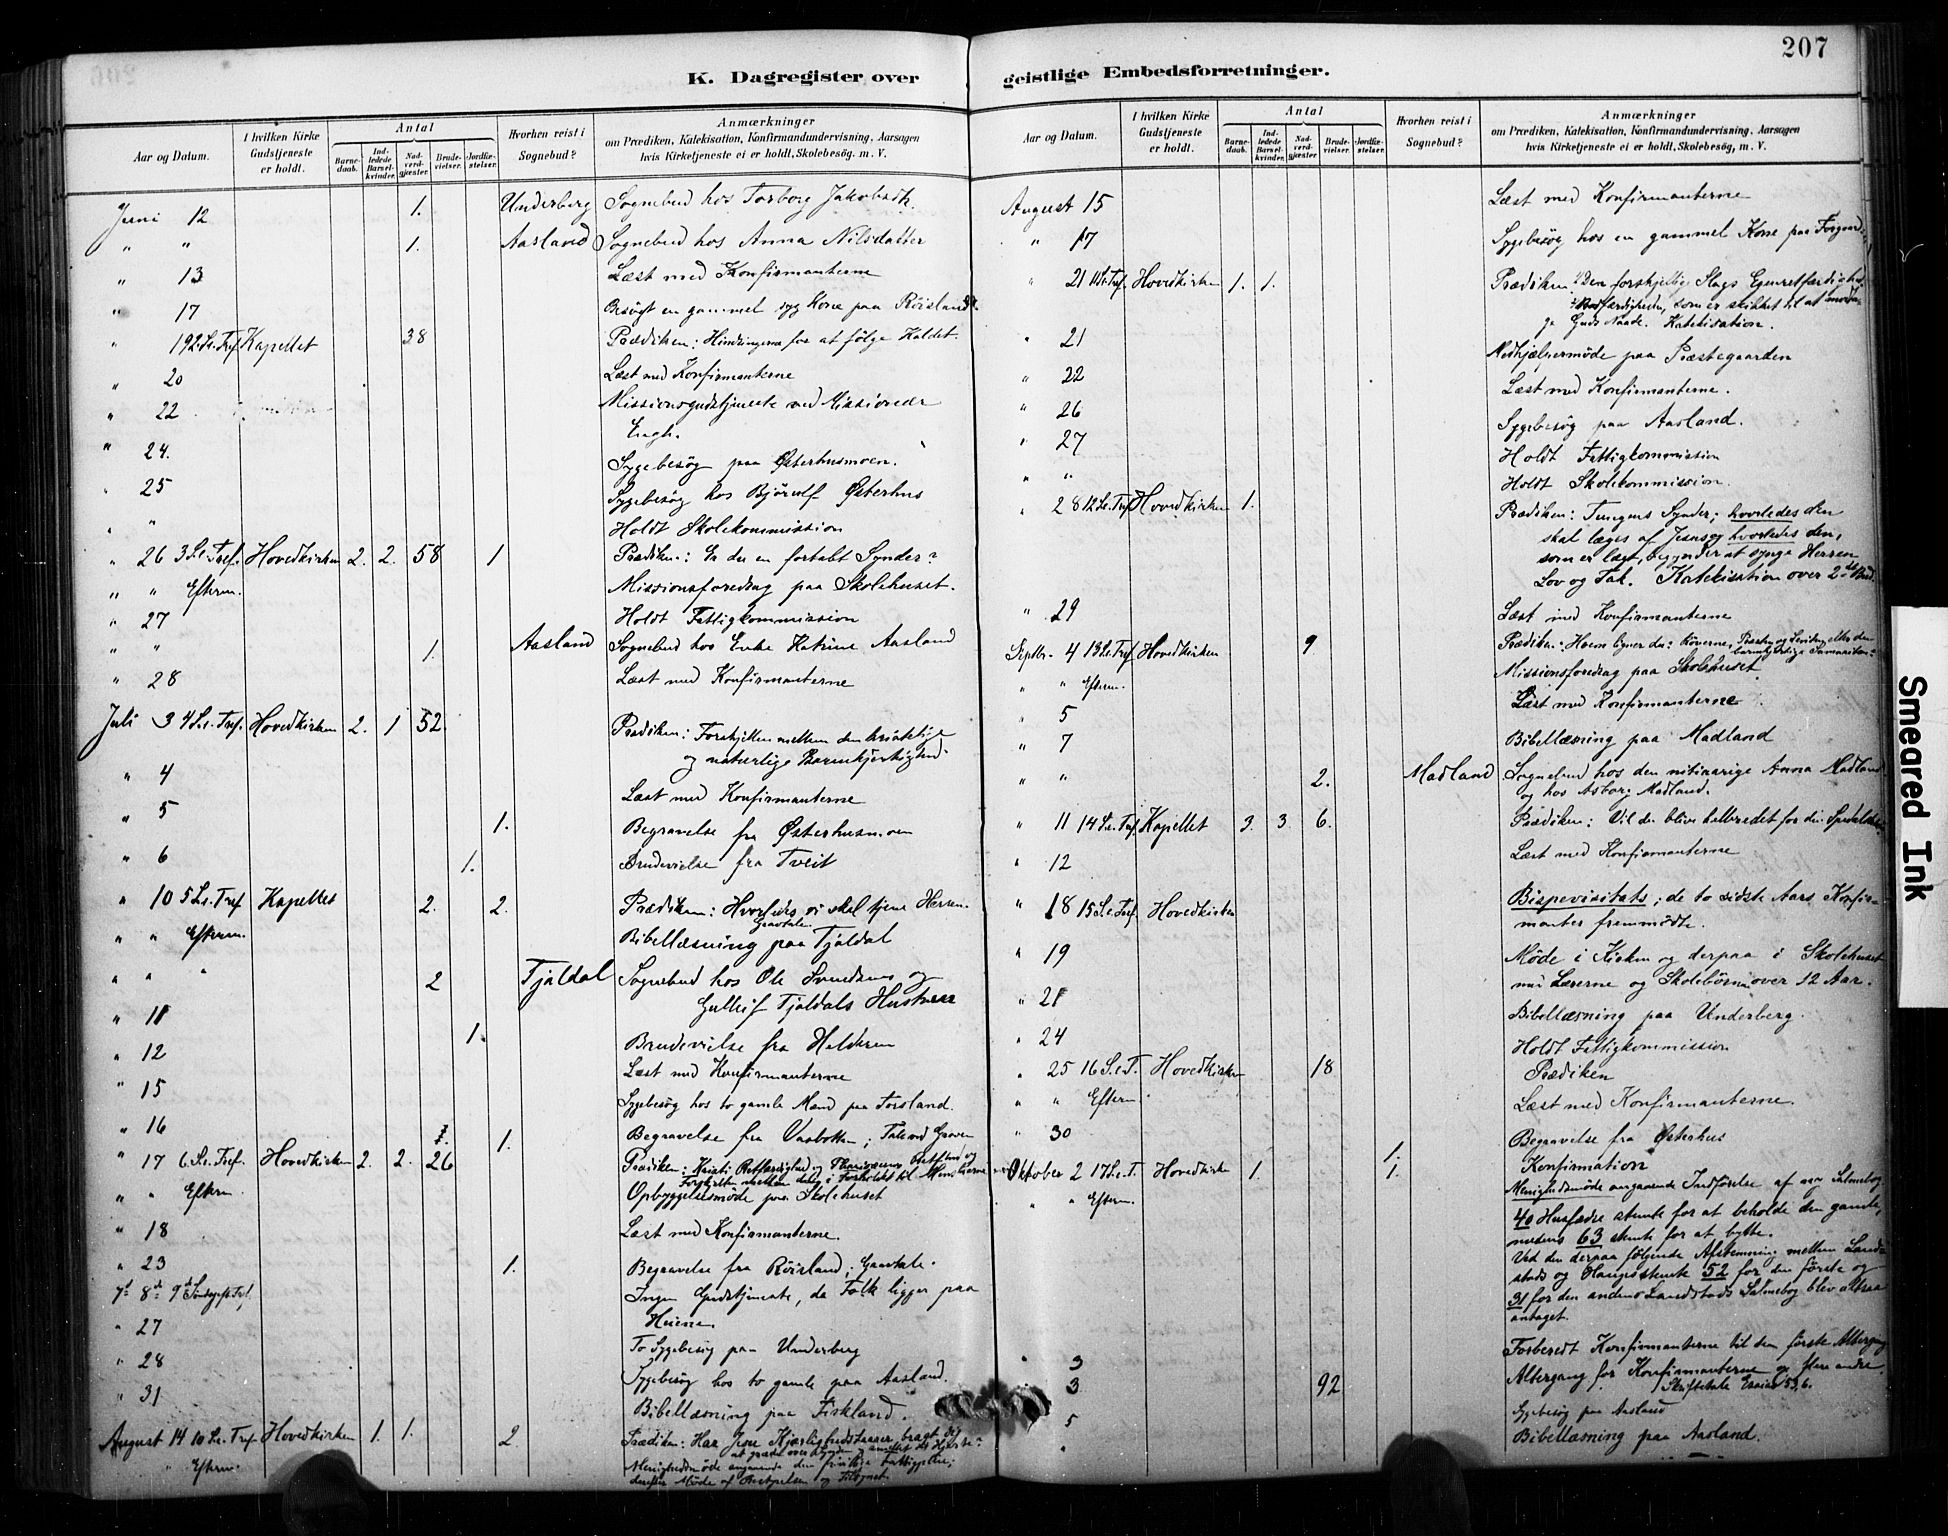 207
K. Dagregister over
geistlige Embedsforretninger.
Aar og Datum.
I hvilken Kirke Gudstjeneste er holdt.
Antal
Barnedaab.
Indledede Barselkvinder.
Nadverdgjæster.
Brudevielser.
Jordfæstelser.
Hvorhen reist i Sognebud?
Anmærkninger
om Prædiken, Katekisation, Konfirmandundervisning, Aarsagen
hvis Kirketjeneste ei er holdt, Skolebesøg, m. V.
Juni 12 1. Underberg Sognebud hos Torborg Jakobsdtr.
" " 1. Aasland Sognebud hos Anna Nilsdatter
" 13 Læst med Konfirmanterne
" 17 Besøgt en gammel syg Kone paa Røisland
" 19 2. S. e. Tref. Kapellet 38 Prædiken: Hindringerne for at følge Kaldet.
" 20 Læst med Konfirmanterne
" 22 Missionsgudstjeneste med Missionær
Engh.
" 24. Sygebesøg paa Østerhusmoen.
" 25 Sygebesøg hos Bjørulf Østerhus
" " Holdt Skolekommission
" 26 3 S. e. Tref. Hovedkirken 2. 2. 58 1 Prædiken: Er du en fortabt Synder?
" " Efterm. Missionsforedrag paa Skolehuset.
" 27 Holdt Fattigkommission
" " 1. Aasland Sognebud hos Enke Katrine Aasland
" 28 Læst med Konfirmanterne
Juli 3 4 S. e. Tref. Hovedkirken 2. 1 52. Prædiken: Forskjellen mellem den kristelige
og naturlige Barmhjertighed
" 4 Læst med Konfirmanterne
" 5 1. Begravelse fra Østerhusmoen
" 6 1. Brudevielse fra Tveit
" 10 5 S. e. Tref Kapellet 2. 2. Prædiken: Hvorledes vi skal tjene Herren.
Gravtale.
" " Efterm. Bibellæsning paa Tjaldal
" " " 2 Tjaldal Sognebud hos Ole Svendsens og
Gulleif Tjaldals Hustruer
" 11 1. Brudevielse fra Halderen
" 12 Læst med Konfirmanterne
" 15 Sygebesøg hos to gamle Mænd paa Forsland.
" 16 1. Begravelse fra Vasbotten; Tale ved Graven
" 17 6 S. e. Tref. Hovedkirken 2. 2. 26 Prædiken: Kristi Retfærdighed og Farisæernes
Forskjellen mellem dem i Forholdet til Menneskene
" " Efterm Opbyggelsesmøde paa Skolehuset
" 18 Læst med Konfirmanterne.
" 23 1. Begravelse fra Røisland; Gravtale.
7de 8de 9de Søndag eft. Tref. Ingen Gudstjeneste, da Folk ligger paa
Heiene.
" 27 To Sygebesøg paa Underberg
" 28 Sygebesøg hos to gamle paa Aasland.
" 31 Bibellæsning paa Fiskland.
August 14 10 S. e. Tref Hovedkirken 1. 1. 2. Prædiken: Har Jesu Kjærlighedstaarer bragt dig
at græde over Synden
" Efterm. Menighedsmøde angaaende den frivillige Fattigpleie;
derefter Møde af Bestyrelsen og Tilsynet.
Aar og Datum.
I hvilken Kirke Gudstjeneste er holdt.
Antal
Barnedaab.
Indledede Barselkvinder.
Nadverdgjæster.
Brudevielser.
Jordfæstelser.
Hvorhen reist i Sognebud?
Anmærkninger
om Prædiken, Katekisation, Konfirmandundervisning, Aarsagen
hvis Kirketjeneste ei er holdt, Skolebesøg, m. V.
August 15 Læst med Konfirmanterne
" 17 Sygebesøg hos en gammel Kone paa
" 21 11 S. e. Tref. Hovedkirken 1. 1. Prædiken: 1) Den forskjellige Slags Egenretfærdighed
som er skikket til at modta-
ge Guds Naade. Katekisation.
" 21 Medhjælpermøde paa Præstegaarden
" 22 Læst med Konfirmanterne.
" 26 Sygebesøg paa Aasland.
" 27 Holdt Fattigkommission
" " Holdt Skolekommission.
" 28 12 S. e. Tref Hovedkirken 1. Prædiken: Tungens Synder; hvorledes den
skal læges af Jesus og hvorledes den,
som er lægt, begynder at synge Herren
Lov og Tak. Katekisation over 2det Bud.
" 29 Læst med Konfirmanterne
Septbr. 4 13 S. e. Tref Hovedkirken 9. Prædiken: Hvem ligner du: Røverne, Præsten og Leviten, eller den
barmhjertige Samaritan?
" " Efterm. Missionsforedrag paa Skolehuset
" 5 Læst med Konfirmanterne
" 7 Bibellæsning paa Madland
" " 2. Madland Sognebud hos den nitiaarige Anna Madland
og hos Asborg Madland.
" 11 14 S. e. Tref Kapellet 3. 3. 6. Prædiken: Vil du blive helbredet for din
" 12 Læst med Konfirmanterne
" 18 15 S. e. Tref Hovedkirken Bispevisitats; de to sidste Aars Konfir-
manter fremmødte.
" 19 Møde i Kirken og derpaa i Skolehuset
med Lærerne og Skolebørn over 12 Aar.
" 21 Bibellæsning paa Underberg.
" 24 Holdt Fattigkommission
" 25 16 S. e. T. Hovedkirken 18 Prædiken
" " Efterm Læst med Konfirmanterne.
" 30 1. Begravelse fra Østerhus
Oktober 2 17 S. e. T. Hovedkirken 1. 1. Konfirmation
" " Efterm. Menighedsmøde angaaende Indførelse af ny Salmebog
40 Husfædre stemte for at beholde den gamle,
medens 63 stemte for at bytte.
Ved den derpaa følgende Afstemning mellem Land-
stads og Hauges stemte 52 for den første og
31 for den anden. Landstads Salmebog blev altsaa
antaget.
" 3 Forberedt Konfirmanterne til den første Altergang
" 3 92 Altergang for Konfirmanterne og flere andre
Skriftetale Esaias 53,6.
" 5 Sygebesøg paa Aasland
" " Bibellæsning paa Aasland.
Smeared Ink